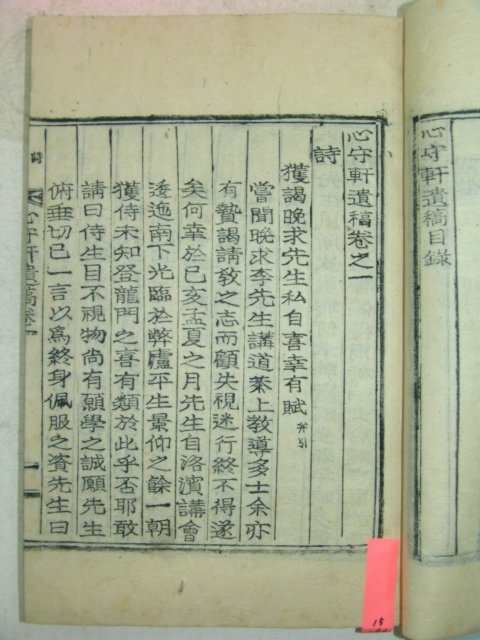 心守軒遺稿目錄
心守軒遺稿卷之一
詩
獲謁晚求先生私自喜幸有賦 并引
嘗聞晚求李先生講道泰上教導多士余亦
有贄謁請教之志而顧失視迷行終不得遂
矣何幸於己亥孟夏之月先生自洛濱講會
逶迤南下光臨於弊廬平生景仰之餘一朝
獲侍未知登龍門之喜有類於此乎否耶敢
請曰侍生目不視物尚有願學之誠願先生
俯垂切已一言以爲終身佩服之資先生曰
詩
心守軒遺稿卷一
一
15